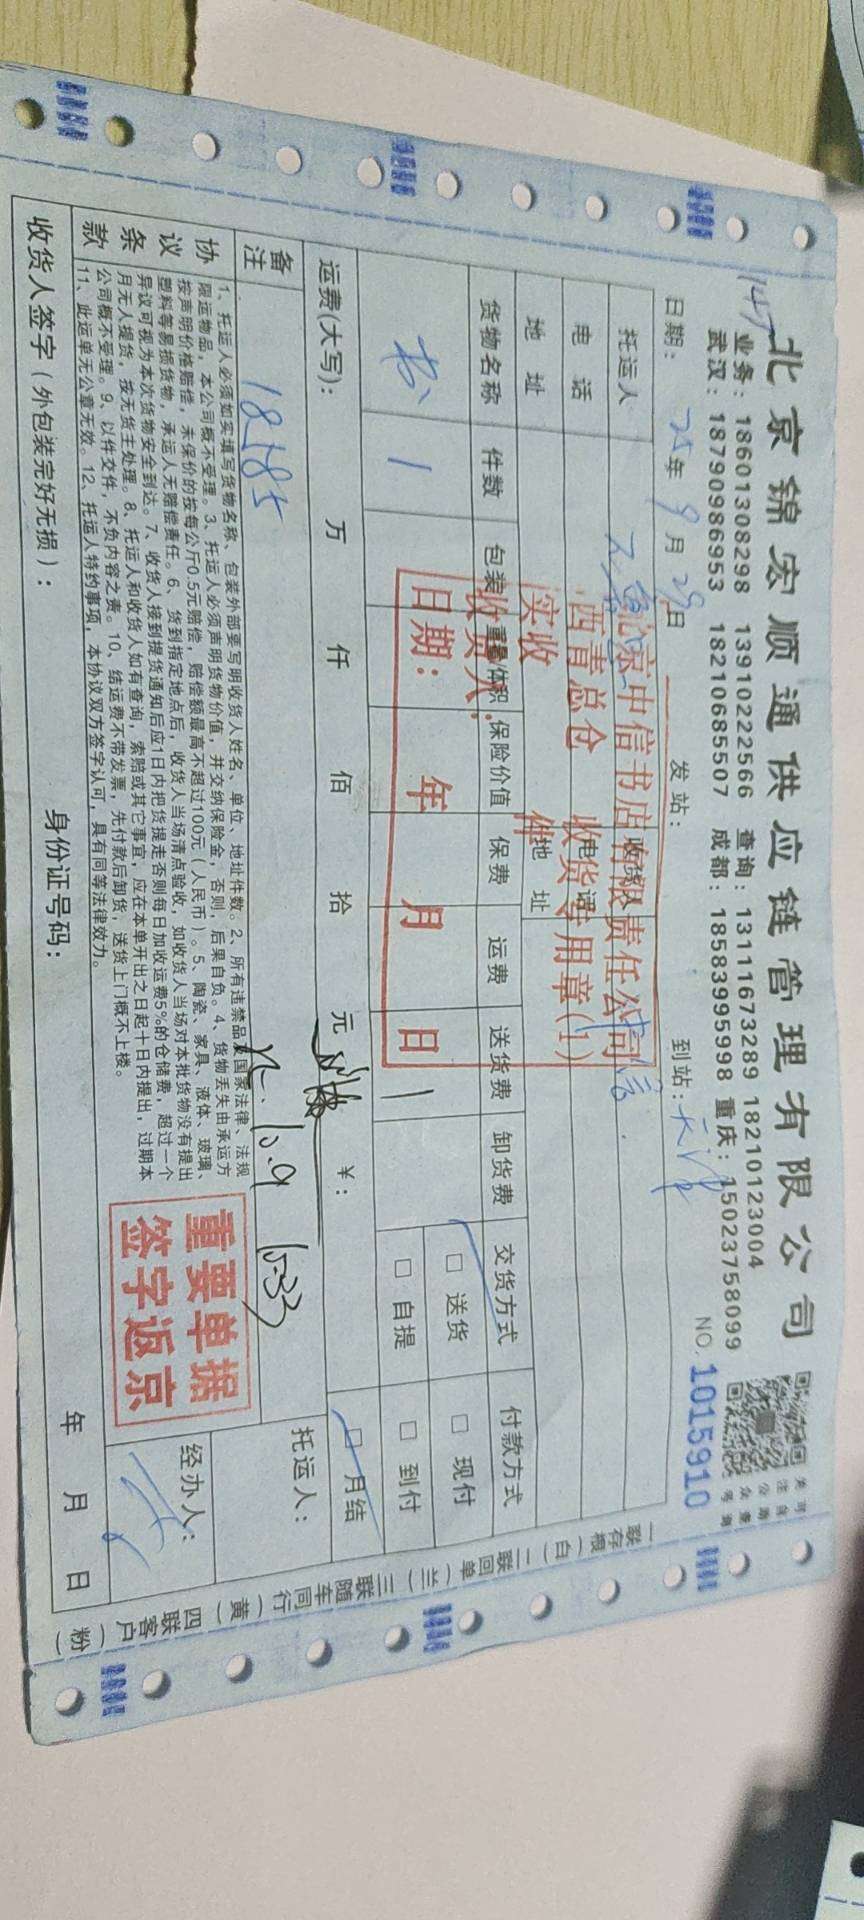 北京锦宏顺通供应链管理有限公司
业务：18601308298 13910222566 查询：13111673289 18210123004
武汉：18790986953 18210685507 成都：18583995998 重庆：15023758099
关注公众号
NO. 1015910
日期：25年9月29日 发站： 到站：天津
托运人 收货人 中信
电话 电话
地址 地址
货物名称 件数 包装 重量/体积 保险价值 保费 运费 送货费 卸货费 交货方式 付款方式
书 1 1 □ 送货 □ 现付
□ 自提 □ 到付
运费(大写)： 万 仟 佰 拾 元 ￥： □ 月结
备注 18185 10.9 10:33 托运人：
协议条款
1、托运人必须如实填写货物名称、包装外部要写明收货人姓名、单位、地址件数。2、所有违禁品及国家法律、法规
限运物品，本公司概不受理。3、托运人必须声明货物价值，并交纳保险金，否则，后果自负。4、货物丢失由承运方
按声明价格赔偿，未保价的按每公斤0.5元赔偿，赔偿额最高不超过100元（人民币）。5、陶瓷、家具、液体、玻璃、
塑料等易损货物，承运人无赔偿责任。6、货到指定地点后，收货人当场清点验收，如收货人当场对本批货物没有提出
异议可视为本次货物安全到达。7、收货人接到提货通知后应1日内把货提走否则每日加收运费5%的仓储费，超过一个
月无人提货，按无货主处理。8、托运人和收货人如有查询，索赔或其它事宜，应在本单开出之日起十日内提出，过期本
公司概不受理。9、以件交件，不负内容之责。10、结运费不带发票，先付款后卸货，送货上门概不上楼。
11、此运单无公章无效。12、托运人特约事项，本协议双方签字认可，具有同等法律效力。
经办人：
收货人签字（外包装完好无损）： 身份证号码： 年 月 日
北京中信书店有限责任公司
西青总仓 收货专用章(1)
实收 件
收货人：
日期： 年 月 日
重要单据
签字返京
一联存根（白）二联回单（兰）三联随车同行（黄）四联客户（粉）